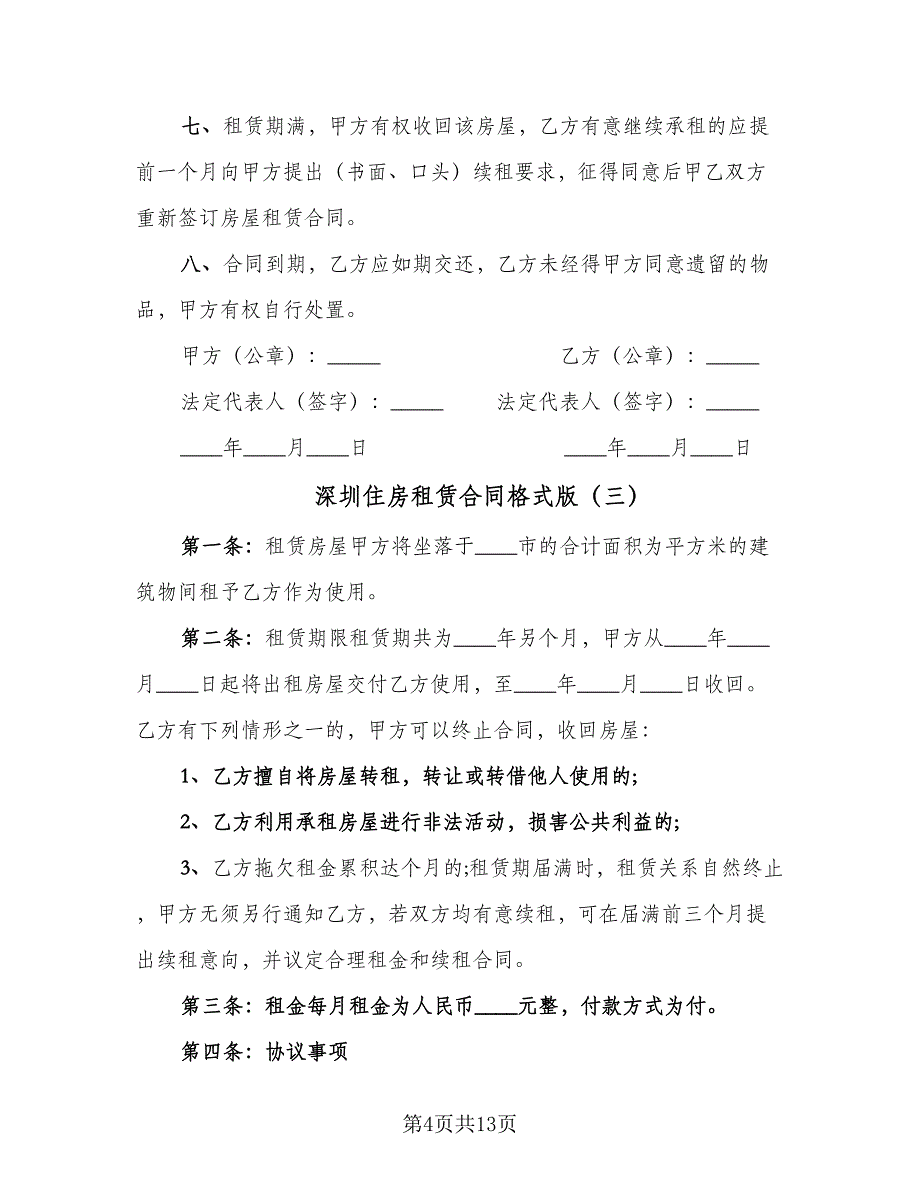 七、租赁期满，甲方有权收回该房屋，乙方有意继续承租的应提
前一个月向甲方提出（书面、口头）续租要求，征得同意后甲乙双方
重新签订房屋租赁合同。
八、合同到期，乙方应如期交还，乙方未经得甲方同意遗留的物
品，甲方有权自行处置。
甲方（公章）：_____ 乙方（公章）：_____
法定代表人（签字）：_____ 法定代表人（签字）：_____
____年____月____日 ____年____月____日
深圳住房租赁合同格式版（三）
第一条：租赁房屋甲方将坐落于____市的合计面积为平方米的建
筑物间租予乙方作为使用。
第二条：租赁期限租赁期共为____年另个月，甲方从____年____
月____日起将出租房屋交付乙方使用，至____年____月____日收回。
乙方有下列情形之一的，甲方可以终止合同，收回房屋：
1、乙方擅自将房屋转租，转让或转借他人使用的;
2、乙方利用承租房屋进行非法活动，损害公共利益的;
3、乙方拖欠租金累积达个月的;租赁期届满时，租赁关系自然终止
，甲方无须另行通知乙方，若双方均有意续租，可在届满前三个月提
出续租意向，并议定合理租金和续租合同。
第三条：租金每月租金为人民币____元整，付款方式为付。
第四条：协议事项
第4页共13页